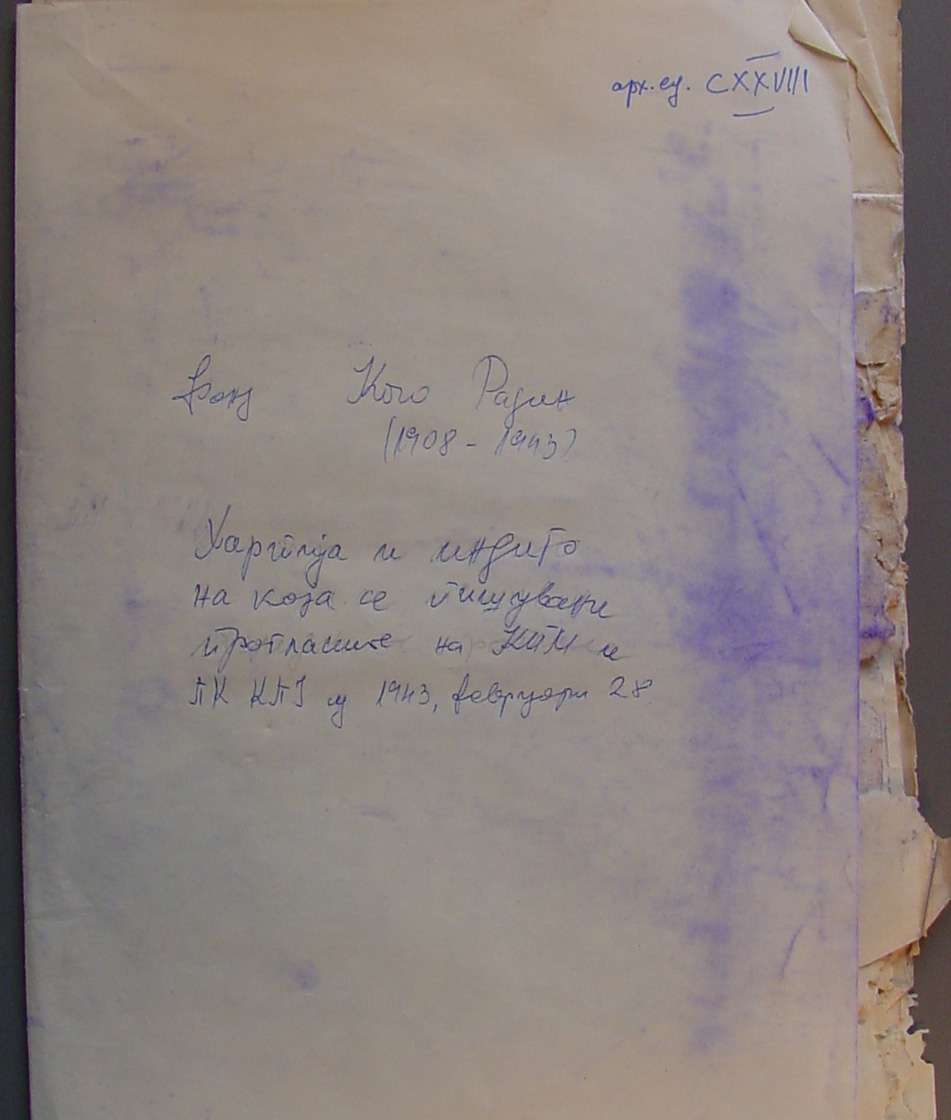 арх. ед. CXXVIII
Фонд Кочо Рацин
(1908 - 1943)
Хартија и индиго
на која се пишувани
прогласите на
ПК КПЈ од 1943, февруари 28